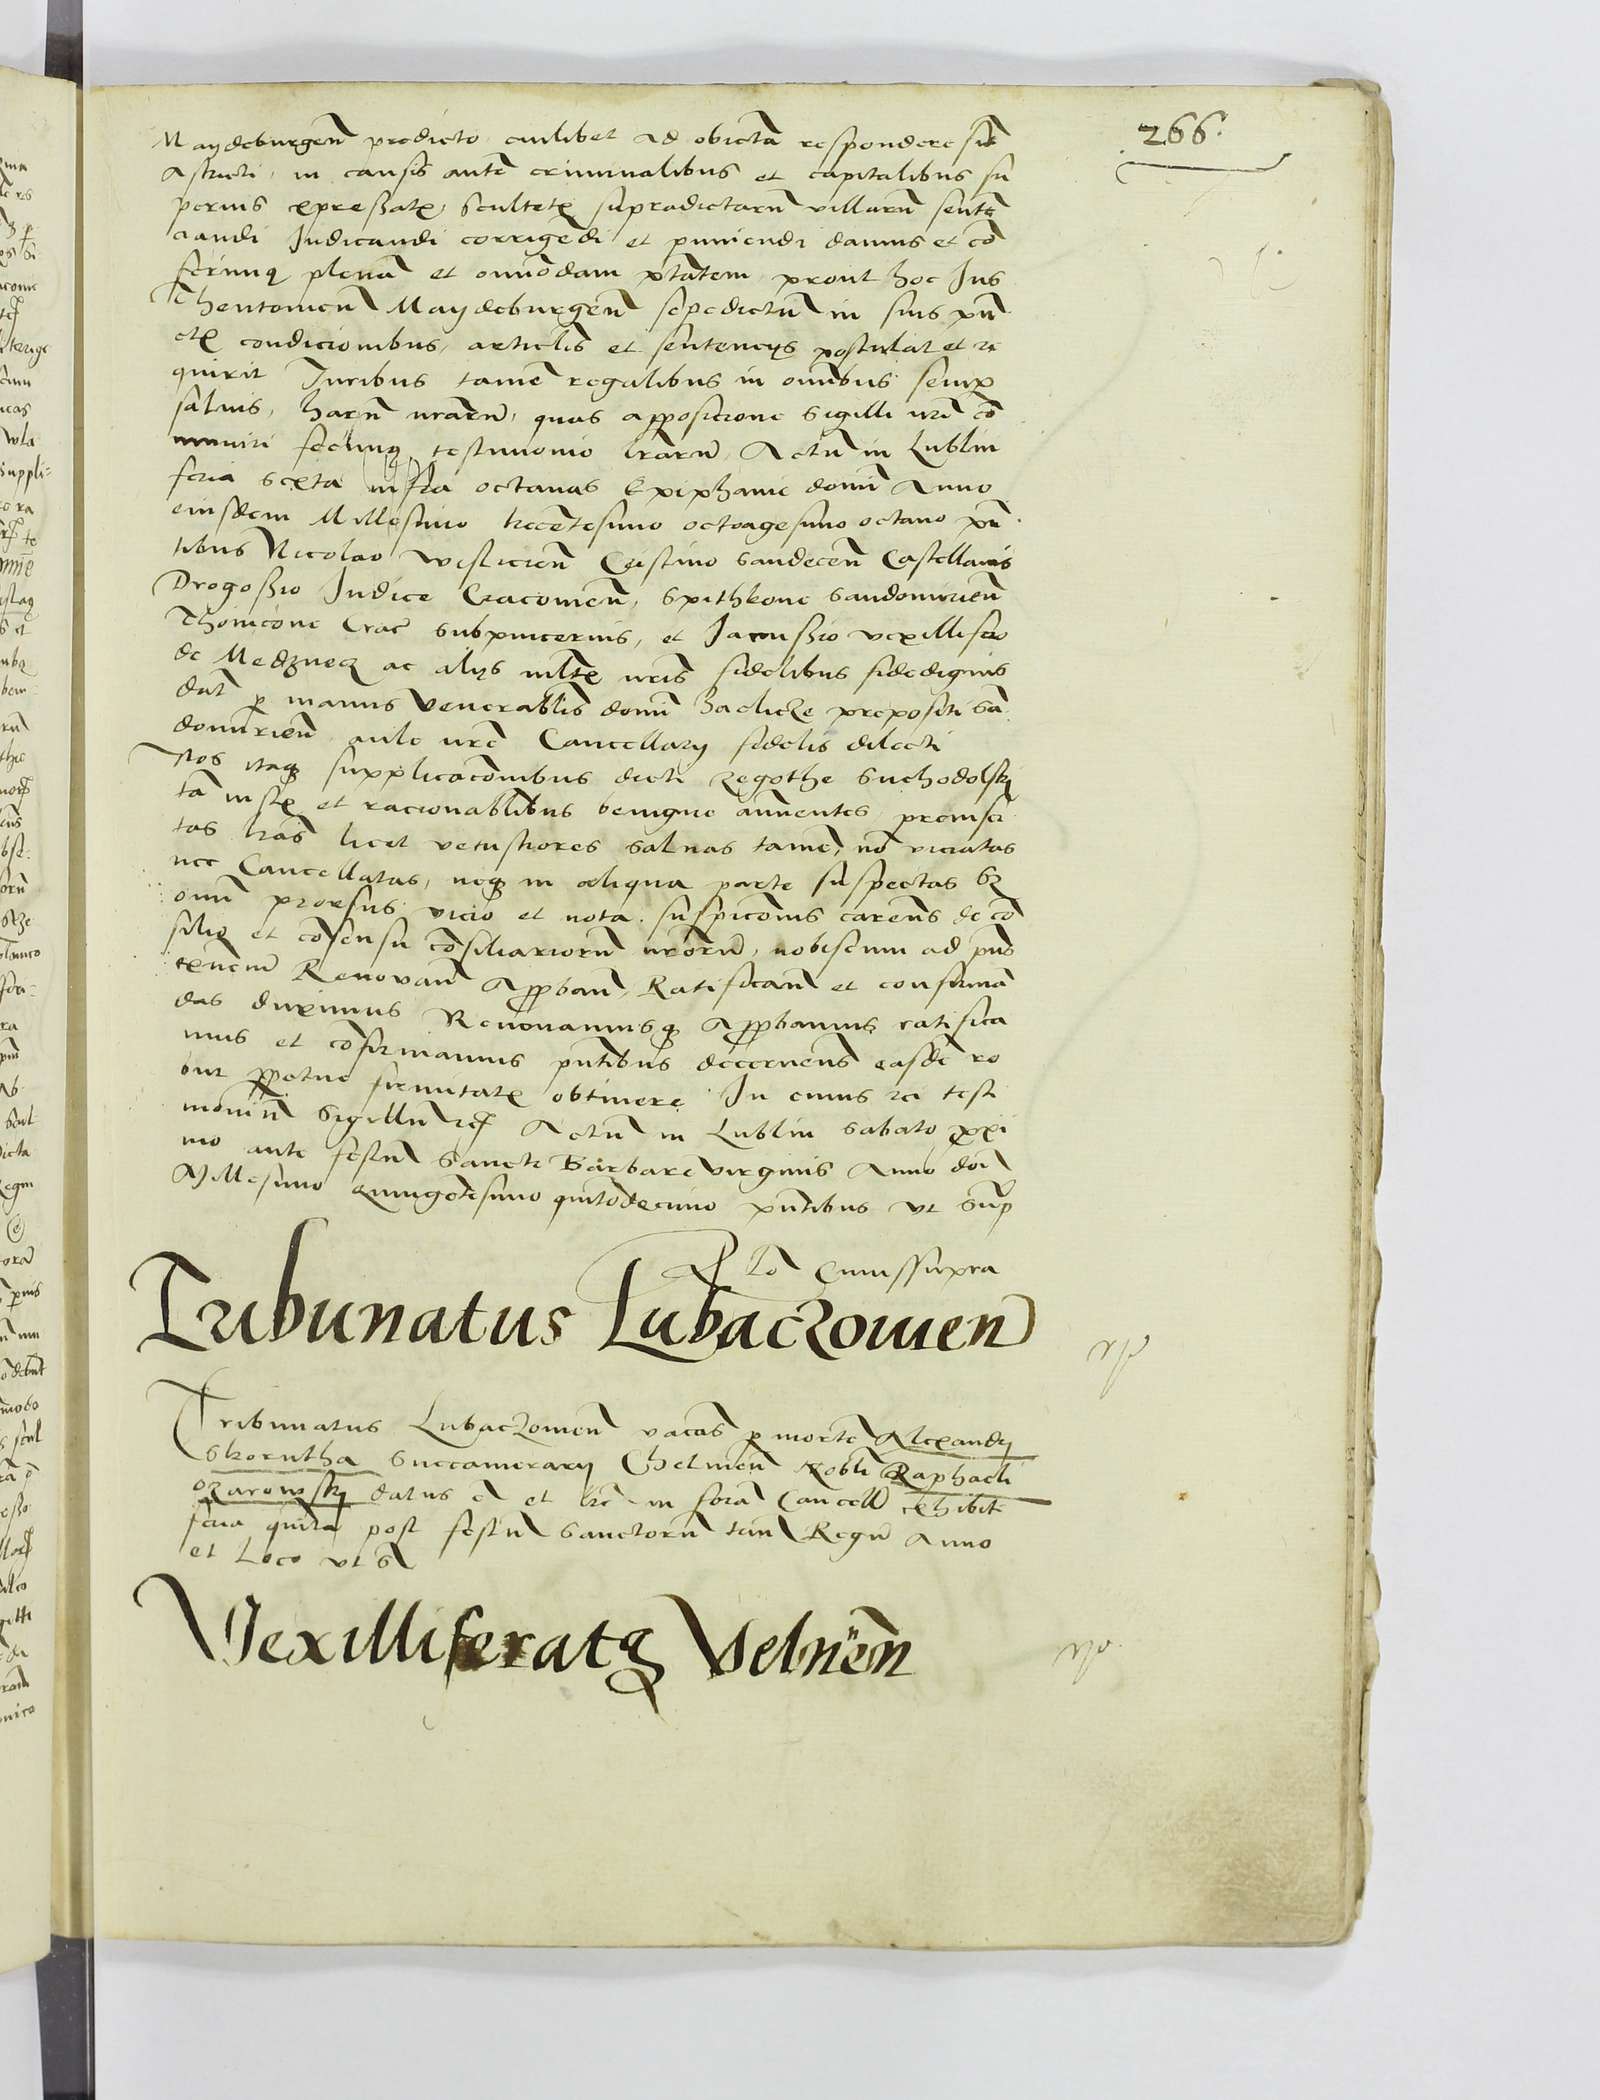 266.
Maydeburgen̄ predicto cuilibet ad obiecta respondere sint
astricti, in causis autē criminalibus et capitalibus su
perius expressatꝭ, scultetꝭ supradictarū villarū sentē
ciandi Iudicandi corrigēdi et puniendi damus et cō
ferimꝰ plenā et omnōdam ptātem, prout hoc Ius
Theutonicū Maydeburgen̄ sepedictū in suis pūn
ctꝭ condicionibus, articl̄is et sentencÿs postulat et re
quirit Iuribus tamē regalibus in omībus semꝑ
saluis, harū nrarū, quas apposicione sigilli nrī cō
muniri fecimꝰ testimonio lrārū, Actū in Lublin
feria sexta infra octauas Epiphanie domī Anno
eiusdem Millesimo trecētesimo octoagesimo octauo pn̄
tibus Nicolao wislicien̄ Cristino sandecen̄ Castellanis
Drogossio Iudice Cracouien̄, Spithkone sandomirien̄
Thomcone Crac̄ subpincernis, et Iarussio vexillifero
de ac alÿs mltꝭ nrīs fidelibus fidedignis
dat̄ ꝑ manus venerabl̄is domī Zaclicze prepositi sā
domirien̄ aule nrē Cancellarÿ fidelis dilecti
Nos itaqꝫ supplicacōnibus dicti zegothe Suchodolskÿ
tā iustꝭ et racionabl̄ibus benigne annuentes preinser
tas lrās licet vetustiores saluas tamē, nō viciatas
nec Cancellatas, neqꝫ in aliqua parte suspectas sꝫ
omī prorsus vicio et nota suspicōnis caren̄s de cō
silio et cōsensu cōsiliariorū nrōrū, nobiscum ad pn̄s
existen̄ Renouan̄ Approban̄, Ratifican̄ et confirmā
das duximus Renouamusqꝫ Approbamus ratifica
mus et cōfirmamus pn̄tibus decernen̄s easdē ro
bur ꝑpetue firmitatꝭ obtinere In cuius rei testi
moniū Sigillū etc̄ Actū in Lublin sabato proxi
mo ante festū Sancte Barbare virginis Anno doī
Millesimo Quingētesimo quītodecimo pn̄tibus vt supra
Rlō Cuius supra
Tribunatus Lubaczouien̄
Tribunatus Lubaczouien̄ vacās ꝑ mortē Alexandrj
Skorutha Succamerarÿ Chelmen̄ Nobli Raphaeli
ozarowskÿ datus ē et lrē in forā Cancell̄ exhibite
feria quinta post festū Sanctorū triū Regū Anno
et Loco vt s̄
Vexilliferatꝰ Velunen̄